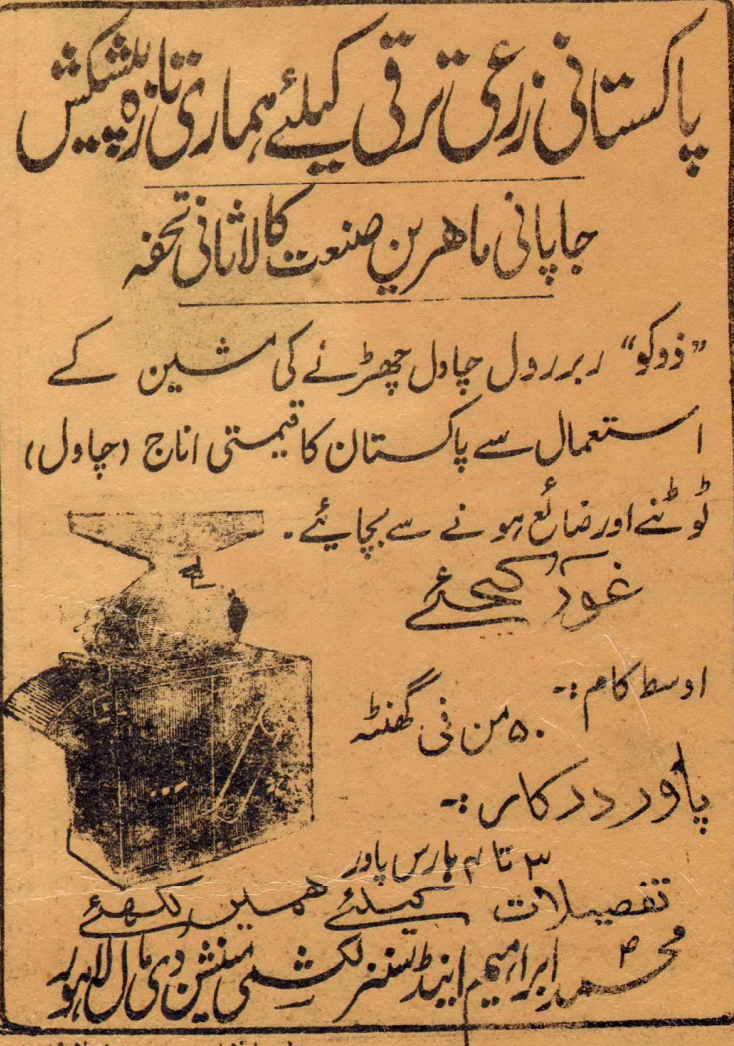 پاکستانی زرعی ترقی کیلئے ہماری تازہ پیشکش
جاپانی ماہرین صنعت کا لاثانی تحفہ
”ذوکو“ ربررول چاول چھڑنے کی مشین کے
استعمال سے پاکستان کا قیمتی اناج (چاول)
ٹوٹنے اور ضائع ہونے سے بچایئے۔
غور کیجئے
اوسط کام :-
۵۰ من فی گھنٹہ
پاور درکار :-
۳ تا ۴ ہارس پاور
تفصیلات کیلئے ہمیں لکھئے
محمد ابراہیم اینڈ سنز لکشمی منشن دی مال لاہور